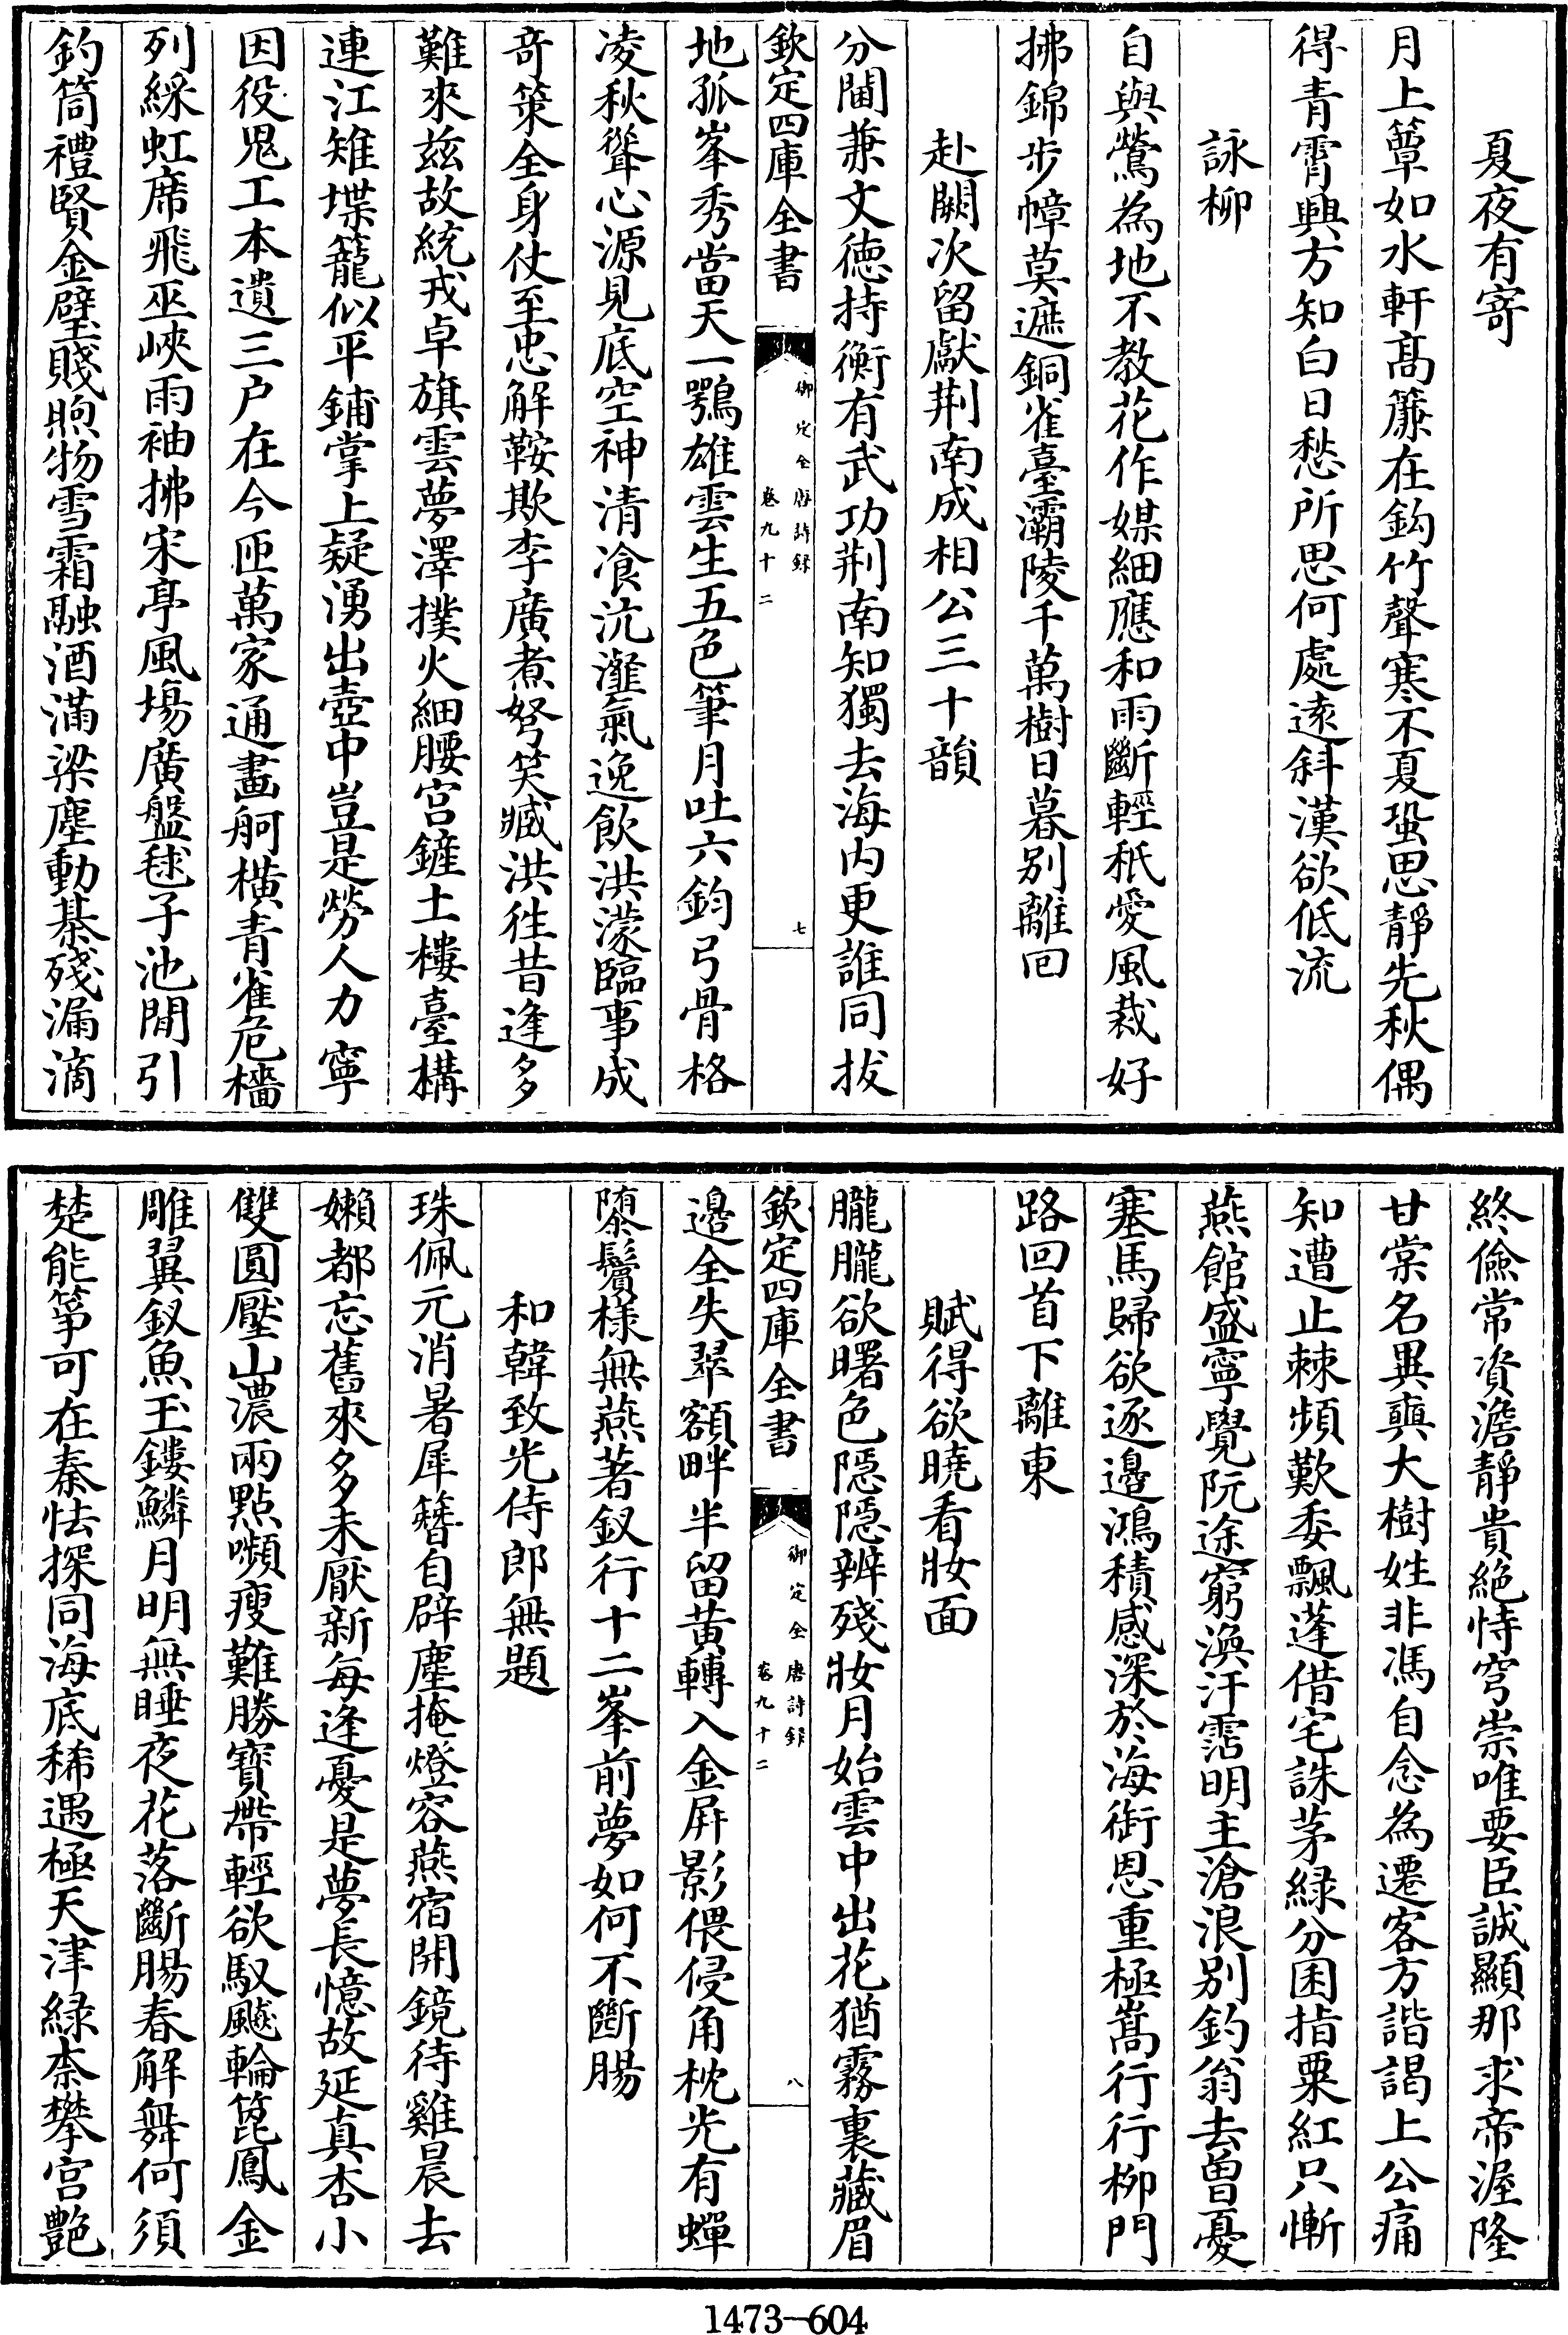 夏夜有寄
月上簟如水軒髙簾在鈎竹聲寒不夏蛩思靜先秋偶
得青霄興方知白日愁所思何處逺斜漢欲低流
詠柳
自與鶯為地不教花作媒細應和雨斷輕秖愛風裁好
拂錦步幛莫遮銅雀臺灞陵千萬樹日暮别離回
赴闕次留獻荆南成相公三十韻
分閫兼文徳持衡有武功荆南知獨去海内更誰同拔
欽定四庫全書
御定全唐詩録
卷九十二
七
地孤峯秀當天一鶚雄雲生五色筆月吐六鈞弓骨格
凌秋聳心源見底空神清飡沆瀣氣逸飲洪濛臨事成
竒策全身仗至忠解鞍欺李廣煮弩笑臧洪徃昔逢多
難來兹故統戎卓旗雲夢澤撲火細腰宫鏟土樓臺構
連江雉堞籠似平鋪掌上疑湧出壺中豈是勞人力寧
因役鬼工本遺三户在今匝萬家通畫舸横青雀危檣
列綵虹席飛巫峽雨袖拂宋亭風塲廣盤毬子池閒引
釣筒禮賢金璧賤煦物雪霜融酒滿梁塵動棊殘漏滴
終儉常資澹靜貴絶恃穹崇唯要臣誠顯那求帝渥隆
甘棠名異奭大樹姓非馮自念為遷客方諧謁上公痛
知遭止棘頻歎委飄蓬借宅誅茅緑分囷指粟紅只慚
燕館盛寧覺阮途窮渙汗霑明主滄浪别釣翁去曽憂
塞馬歸欲逐邉鴻積感深於海銜恩重極嵩行行柳門
路回首下離東
賦得欲曉看妝面
朧朧欲曙色隠隠辨殘妝月始雲中出花猶霧裏藏眉
欽定四庫全書
御定全唐詩録
卷九十二
八
邉全失翠額畔半留黄轉入金屏影偎侵角枕光有蟬
隳鬢樣無燕著釵行十二峯前夢如何不斷腸
和韓致光侍郎無題
珠佩元消暑犀簪自辟塵掩燈容燕宿開鏡待雞晨去
嬾都忘舊來多未厭新每逢憂是夢長憶故延真杏小
雙圓壓山濃兩點嚬瘦難勝寳帶輕欲馭飇輪箆鳳金
雕翼釵魚玉鏤鱗月明無睡夜花落斷腸春解舞何須
楚能筝可在秦怯探同海底稀遇極天津緑柰攀宫艶
1473—604